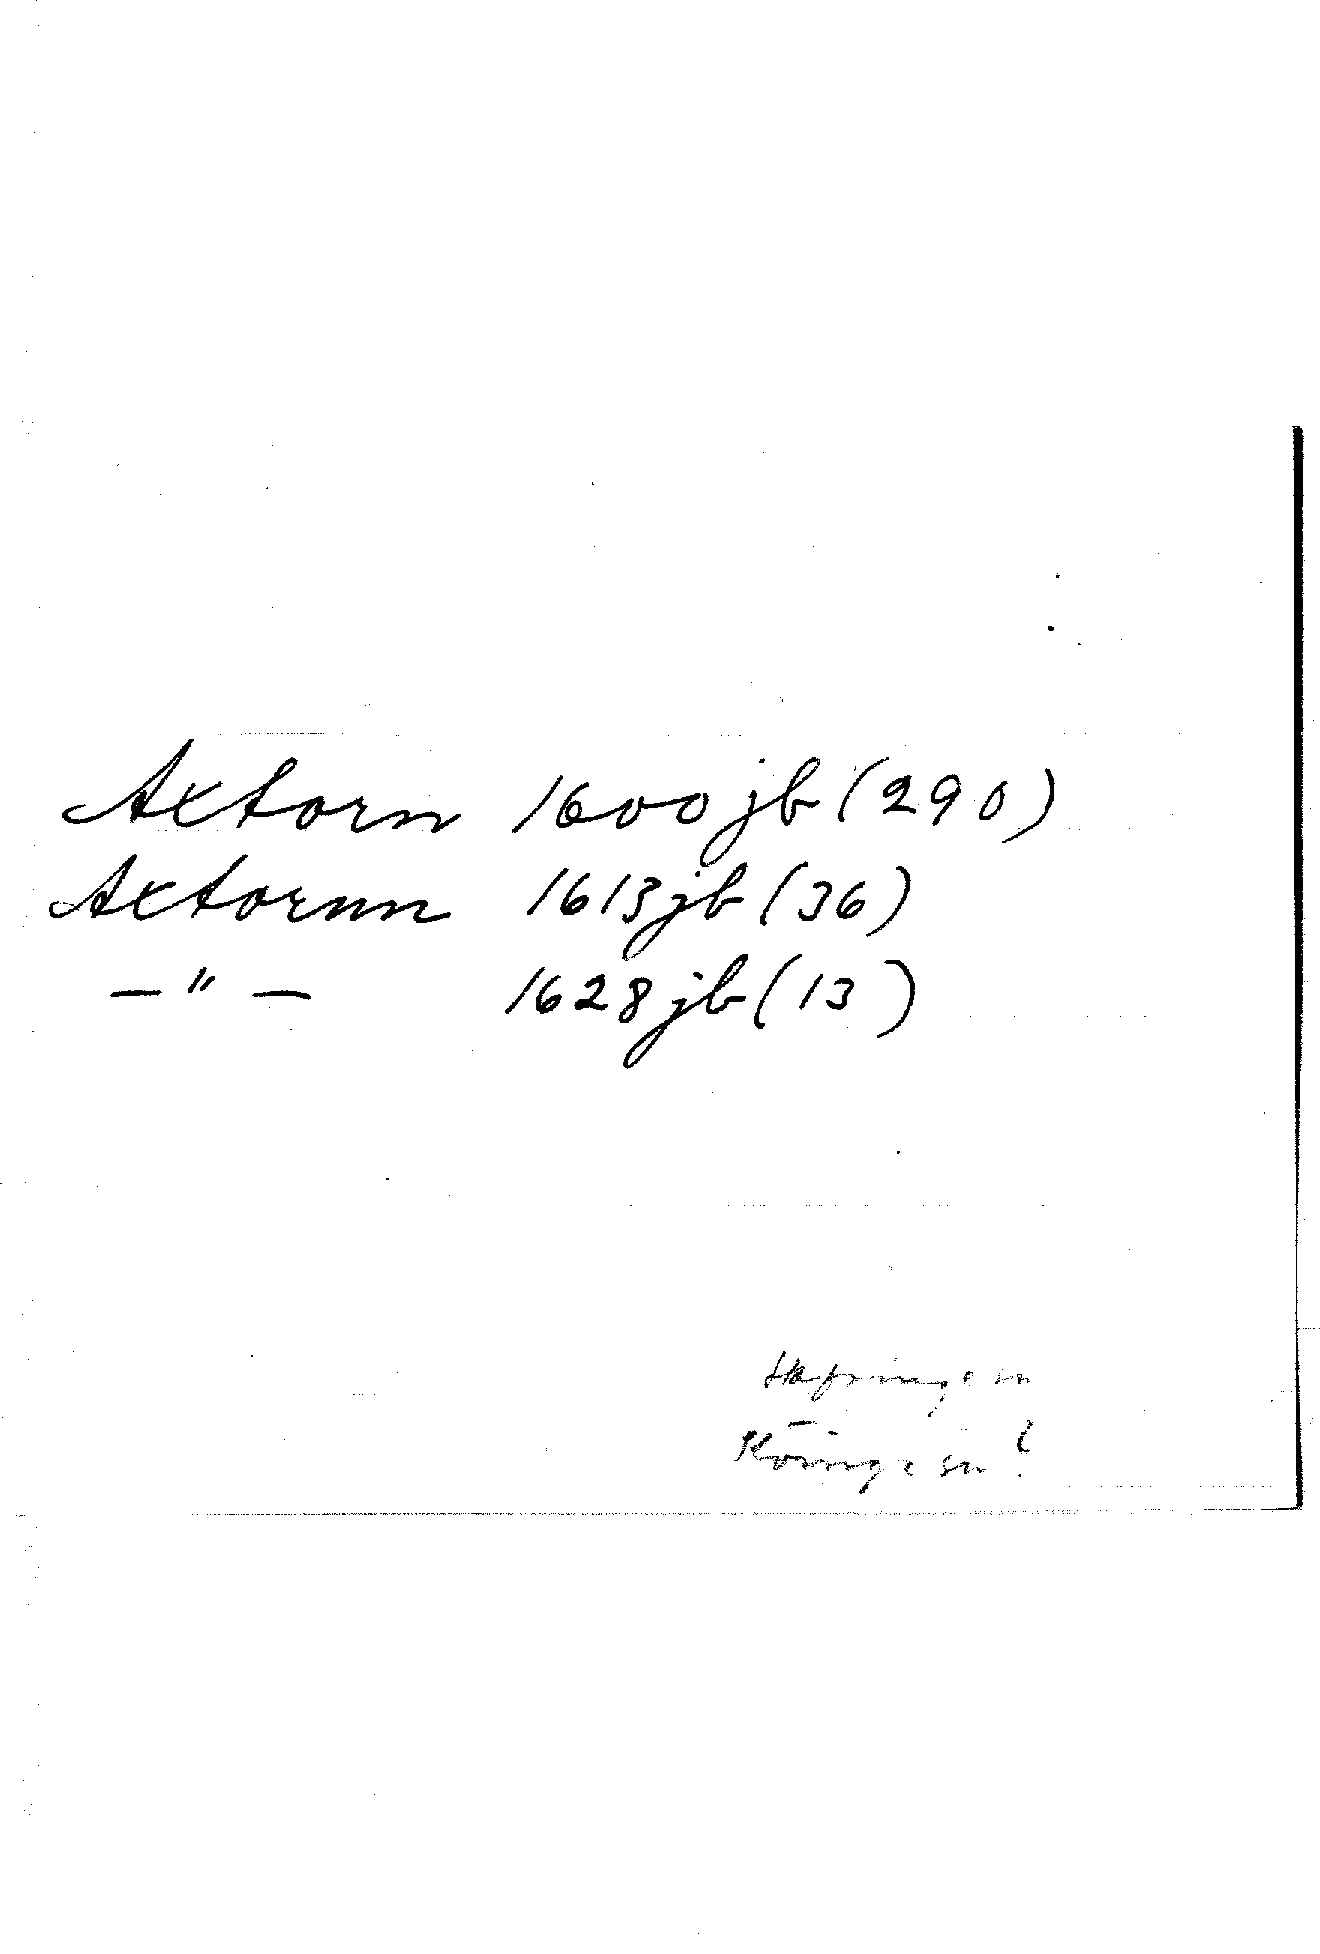 Axtorn 1600 jb (290)
Axtornn 1613 jb (36)
— " — 1628 jb (13)